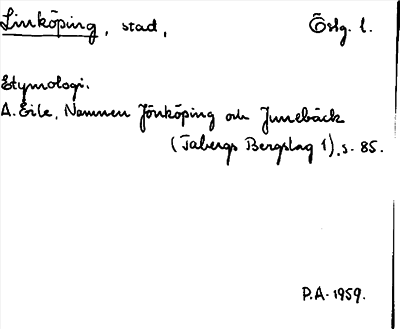 Linköping, stad, Östg. l.
Etymologi.
A. Eile, Namnen Jönköping och Junebäck
(Tabergs Bergslag 1), s. 85.
P.A. 1959.